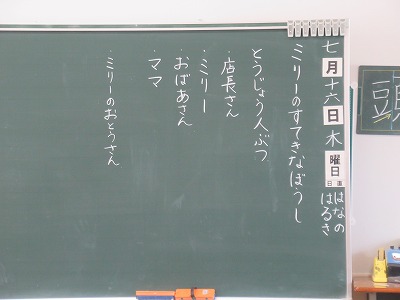 七月十六日木曜日
日直
はなの
はるき
ミリーのすてきなぼうし
とうじょう人ぶつ
・店長さん
・ミリー
・おばあさん
・ママ
・ミリーのおとうさん
頭